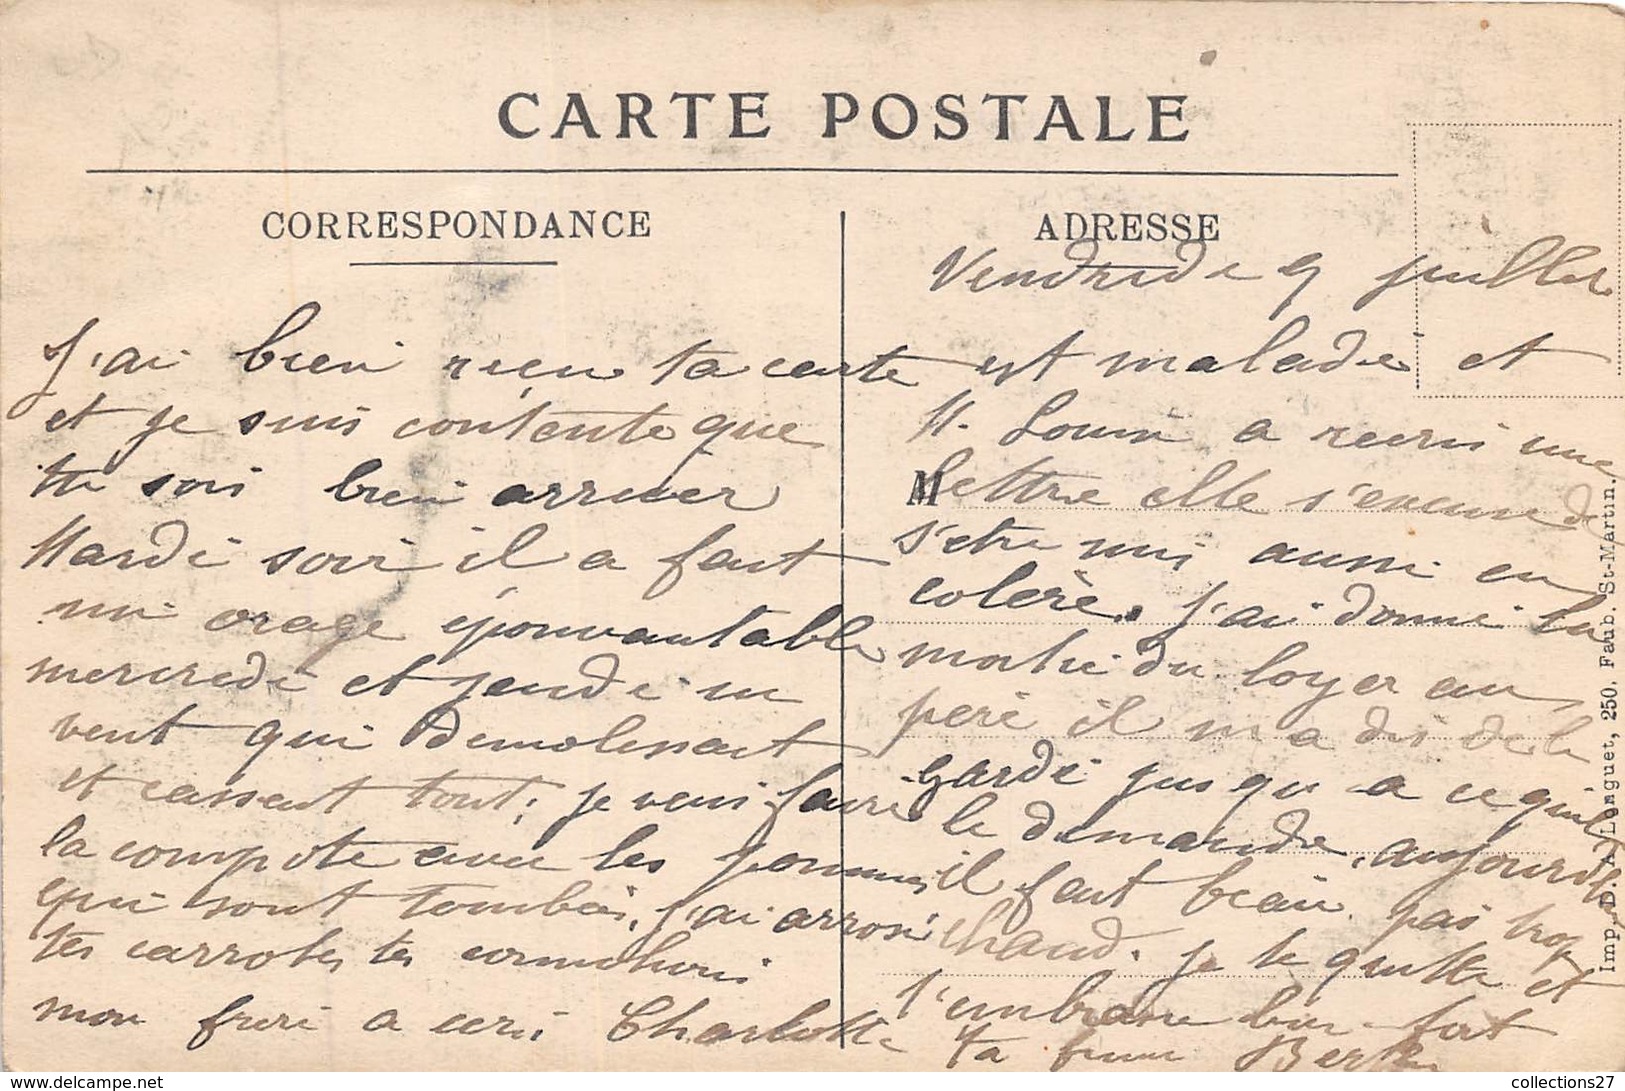 CARTE POSTALE
CORRESPONDANCE
ADRESSE
Vendredi 9 juillet
J'ai bien reçu ta carte
et je suis contente que
tu sois bien arriver
Mardi soir il a fait
un orage épouvantable
mercredi et jeudi un
vent qui demolissait
et cassait tout, je vais faire
la compote avec les pommes
qui sont tombés, j'ai arrosé
tes carrotes tes cornichons
mon frere a ecris Charlotte
est malade et
M. Louise a recris une
M
lettre elle s'excuse de
s'etre mis aussi en
colère. j'ai donné la
moitié du loyer au
père il m a dis de le
garde jusqu a ce qu'il
le demande, aujourd'h
il fait beau pas trop
chaud. je te quitte et
t'embrasse bien fort
ta femme Berthe
Imp. D. A. Longuet, 250, Faub. St-Martin.
collections27